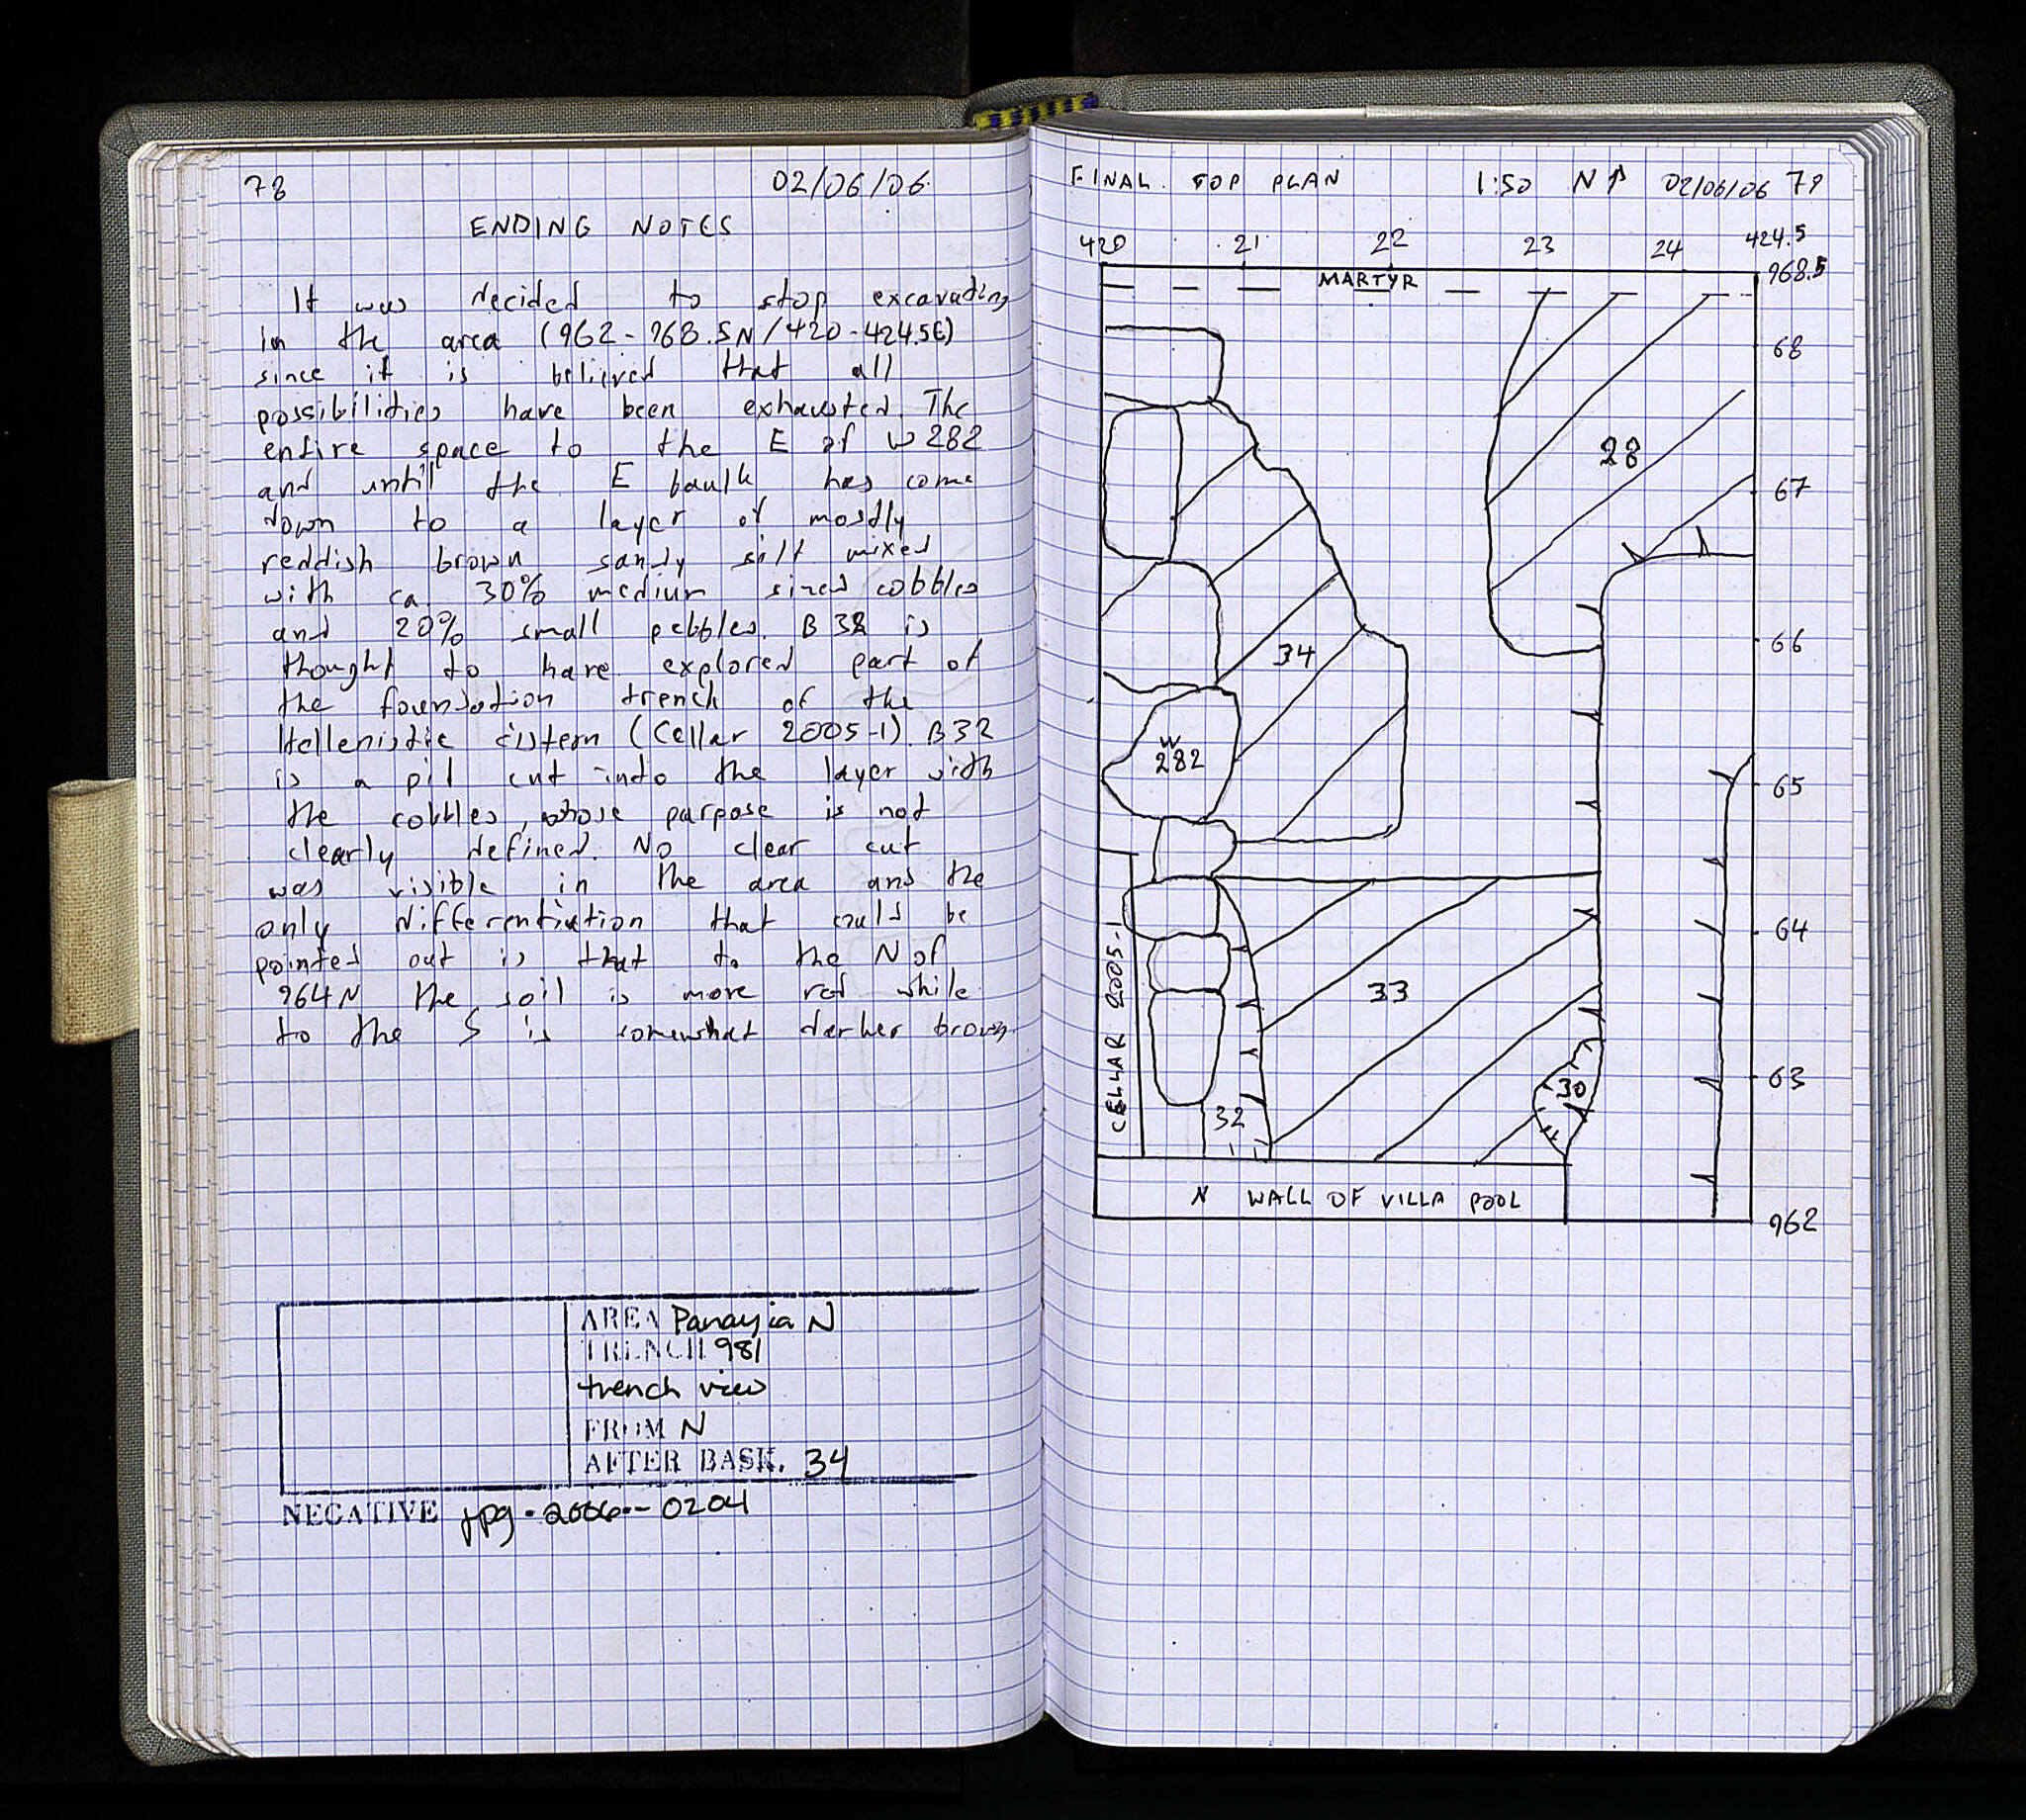 78 02/06/06
ENDING NOTES
It was decided to stop excavating
in the area (962-968.5N/420-424.5E)
since it is believed that all
possibilities have been exhausted. The
entire space to the E of W282
and until the E baulk has come
down to a layer of mostly
reddish brown sandy silt mixed
with ca. 30% medium sized cobbles
and 20% small pebbles. B 32 is
thought to have explored part of
the foundation trench of the
Hellenistic cistern (Cellar 2005-1). B32
is a pit cut into the layer with
the cobbles, whose purpose is not
clearly defined. No clear cut
was visible in the area and the
only differentiation that could be
pointed out is that to the N of
964N the soil is more red while
to the S is somewhat darker brown.
AREA Panayia N
TRENCH 981
trench view
FROM N
AFTER BASK. 34
NEGATIVE jpg-2006-0204
FINAL TOP PLAN 1:50 N 02/06/06 79
420 21 22 23 24 424.5
968.5
MARTYR
68
28
67
66
34
W
282
65
64
CELLAR 2005-1
33
63
30
32
N WALL OF VILLA POOL
962